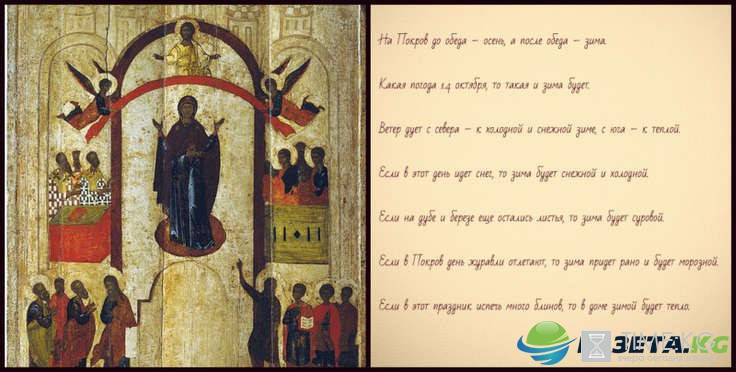 На Покров до обеда – осень, а после обеда – зима.
Какая погода 14 октября, то такая и зима будет.
Ветер дует с севера – к холодной и снежной зиме, с юга – к теплой.
Если в этот день идет снег, то зима будет снежной и холодной.
Если на дубе и березе еще остались листья, то зима будет суровой.
Если в Покров день журавли отлетают, то зима придет рано и будет морозной.
Если в этот праздник испечь много блинов, то в доме зимой будет тепло.